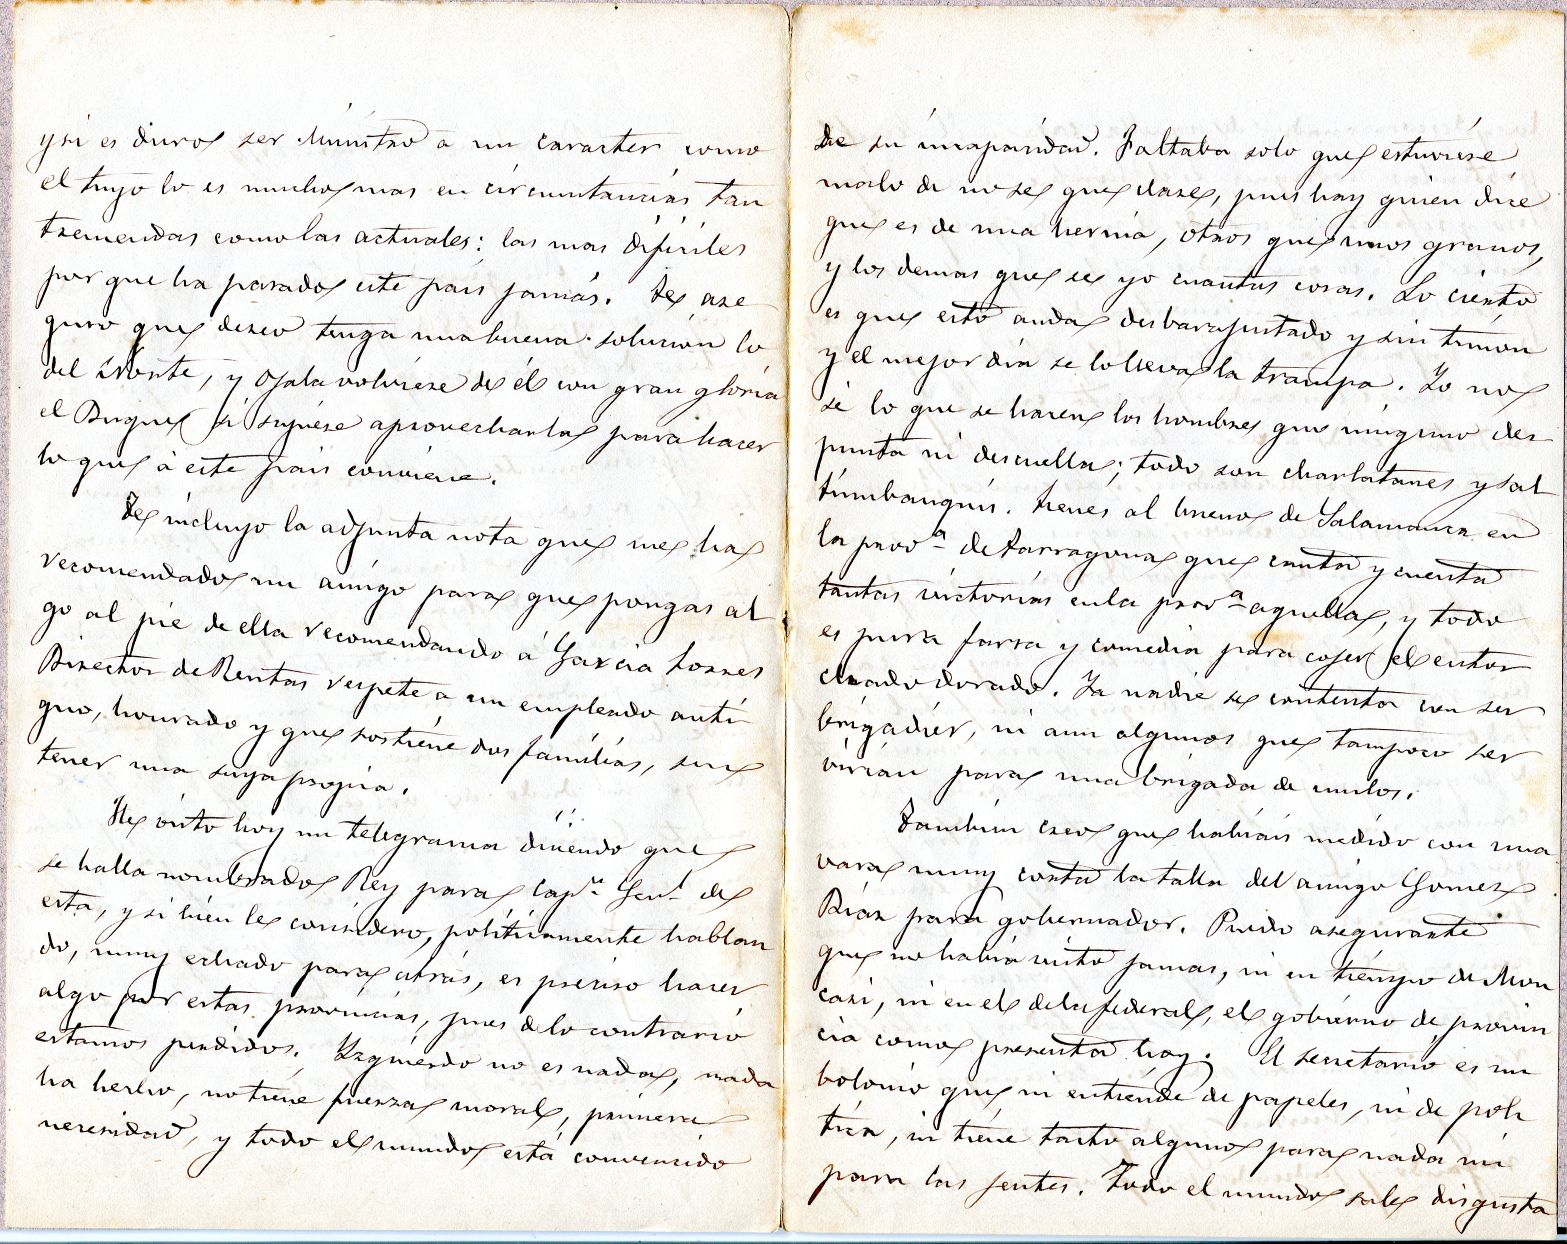 y si es duro ser Ministro a un caracter como
el tuyo lo es mucho mas en circunstancias tan
tremendas como las actuales; las mas dificiles
por que ha pasado este pais jamás. Te ase
guro que deseo tenga una buena solucion lo
del Norte, y ojala volviese de él con gran gloria
el Duque si supiese aprovecharla para hacer
lo que á este pais conviene.
Te incluyo la adjunta nota que me ha
recomendado un amigo para que pongas al
go al pie de ella recomendando á Garcia Torres
Director de Rentas respete a un empleado anti
guo, honrado y que sostiene dos familias, sin
tener una suya propia.
He visto hoy un telegrama diciendo que
se halla nombrado Rey para Capn Genl de
esta, y si bien le considero, politicamente hablan
do, muy echado para atrás, es preciso hacer
algo por estas provincias, pues de lo contrario
estamos perdidos. Izquierdo no es nada, nada
ha hecho, no tiene fuerza moral, primera
necesidad, y todo el mundo está convencido
de su incapacidad. Faltaba solo que estuviese
malo de no se que clase, pues hay quien dice
que es de una hernia, otros que unos granos,
y los demas que se yo cuantas cosas. Lo cierto
es que esto anda desbarajustado y sin timon
y el mejor dia se lo lleva la trampa. Yo no
sé lo que se hacen los hombres que ninguno des
punta ni descuella; todo son charlatanes y sal
timbanquis. Tienes al bueno de Salamanca en
la provª de Tarragona que canta y cuenta
tantas victorias en la provª aquella, y todo
es pura farsa y comedia para cojer el entor
chado dorado. Ya nadie se contenta con ser
brigadier, ni aun algunos que tampoco ser
virian para una brigada de mulos.
Tambien creo que habiais medido con una
vara muy corta la talla del amigo Gomez
Diaz para gobernador. Puedo asegurarte
que no habia visto jamas, ni en tiempo de Mon
casi, ni en el de la federal, el gobierno de provin
cia como presenta hoy. El secretario es un
bolonio que ni entiende de papeles, ni de poli
tica, ni tiene tacto alguno para nada ni
para las jentes. Todo el mundo sale disgusta